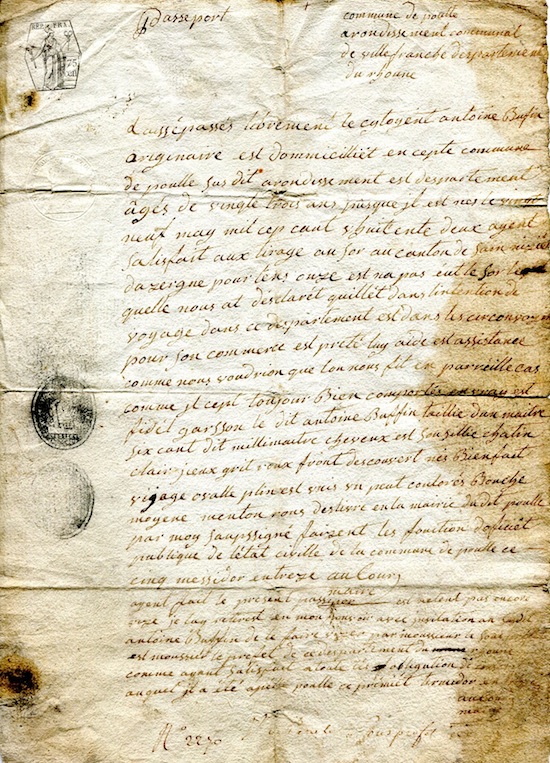 REP. FRA.
75
cen
passeport
commune de poulle
arondissement communal
de villefranche despartement
du rhoune
Lassépassés librement le cytoyent antoine Buffin
ariginaire est dommicilliét en cepte commune
de poulle sus dit arondissement est despartement
âgés de vingte trois ans pasque jl est nes le vingt
neuf may mil cep cant vhuitente deux ayent
satisfait aux tirage au sor au canton de sain nizié
dazergne pour lens onze est na pas eut le sor
quelle nous at desclarét quillét dans lintention de
voyage dans ce despartement est dans les circonvoi
pour son commerce est preté luy aide est assistance
comme nous voudrion que lon nous fit en parreille cas
comme jl cept toujour Bien comportés en vray est
fidél garsson le dit antoine Buffin taillie dun maitre
six cant dit millimaitre cheveux est soussillie chatin
clair jieux gril roux front descouvert nes Bienfait
vigage ovalle plin est un peut coulorés Bouche
moyene menton rons deslivre en la mairie du dit poulle
par moy saupssigné faizent les fonction doficiét
publique de létat civille de la commune de poulle ce
cinq messidor entreze au Cour
maire
ayent fait le present est netent pas oncore
je luy retirest en mon pouvoir avec jnvitation au
antoine Buffin de le faire par monsieur le sous
est moussieur le prefet de ce despartement du rhoune
comme ayant satisfait a toute les obligation de
auquel jl a ete apellé poulle ce premiét termidor en
maire
No 2270